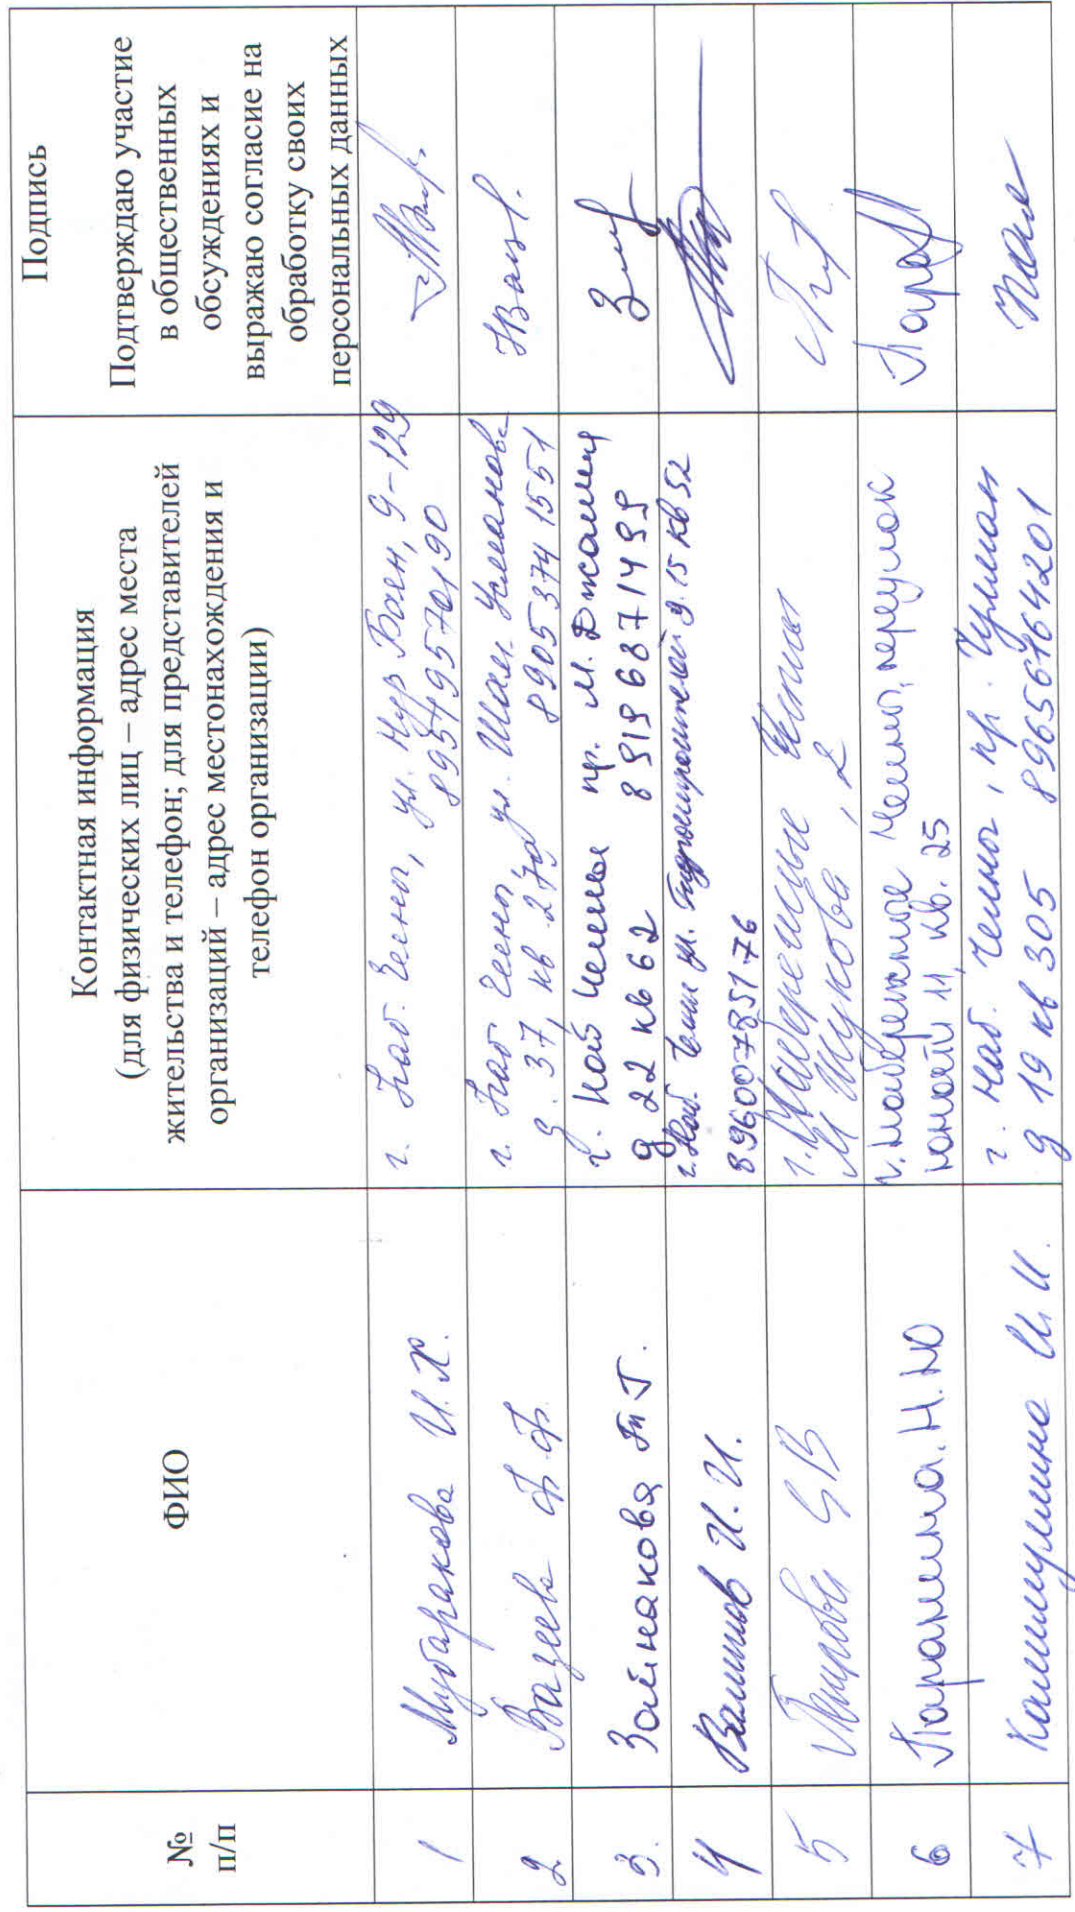 №
п/п
ФИО
Контактная информация
(для физических лиц – адрес места
жительства и телефон; для представителей
организаций – адрес местонахождения и
телефон организации)
Подпись
Подтверждаю участие
в общественных
обсуждениях и
выражаю согласие на
обработку своих
персональных данных
1
Мубаракова И.Х.
г. Наб. Челны, ул. Нур Баян, 9-129
89549570190
2
Вазеева Ф.Ф.
г. Наб Челны, ул. Шам. Усманова
д. 37, кв 27а
89053741551
3.
Зайнакова Т.
г. Наб Челны пр. М. Джалиля
д 22 кв 62 89196871499
4
Валиев И.И.
г. Наб. Челны ул. д. 15 кв 52
89600785176
5
Петрова В
г. Набережные Челны
Жукова, 2
6
Паранина. Н. Ю
г. Набережные Челны, переулок
11, кв. 25
7
И.И.
г. Наб. Челны, пр. Чулман
д 19 кв 305 89656164201